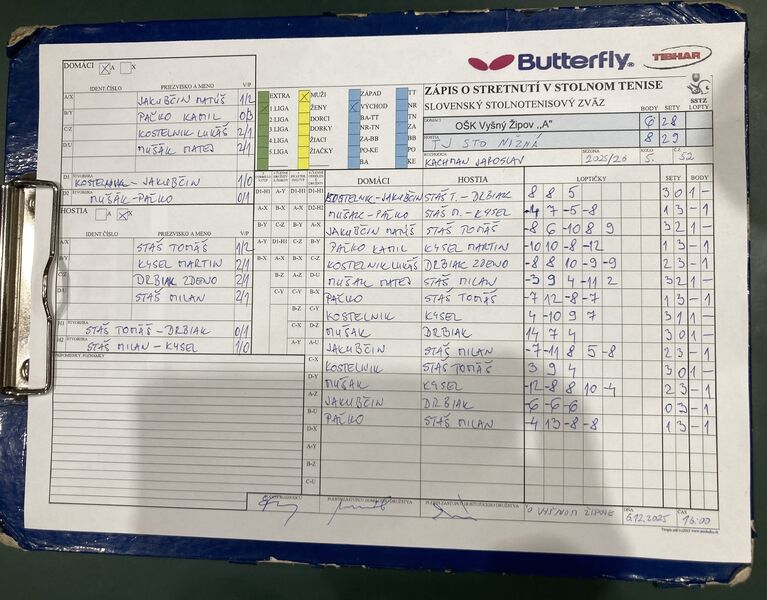 Butterfly
TIBHAR
DOMÁCI A X
IDENT. ČÍSLO PRIEZVISKO A MENO V/P
A/X JAKUBČIN MATÚŠ 1/2
B/Y PAČKO KAMIL 0/3
C/Z KOSTELNIK LUKÁŠ 2/1
D/U MUŠÁK MATEJ 2/1
D1 ŠTVORHRA
KOSTELNIK - JAKUBČIN 1/0
D2 ŠTVORHRA
MUŠÁK - PAČKO 0/1
HOSTIA A X
IDENT. ČÍSLO PRIEZVISKO A MENO V/P
A/X STAŠ TOMÁŠ 1/2
B/Y KYSEL MARTIN 2/1
C/Z DRBIAK ZDENO 2/1
D/U STAŠ MILAN 2/1
H1 ŠTVORHRA
STAŠ TOMÁŠ - DRBIAK 0/1
H2 ŠTVORHRA
STAŠ MILAN - KYSEL 1/0
PRIPOMIENKY, POZNÁMKY
EXTRA MUŽI ZÁPAD TT
1 LIGA ŽENY VÝCHOD NR
2 LIGA DORCI BA-TT ZA
3 LIGA DORKY NR-TN BB
4 LIGA ŽIACI ZA-BB PO
5 LIGA ŽIAČKY PO-KE KE
BA
ZÁPIS O STRETNUTÍ V STOLNOM TENISE
SLOVENSKÝ STOLNOTENISOVÝ ZVÄZ
SSTZ
BODY SETY LOPTY
DOMÁCI OŠK Vyšný Žipov „A" 6 28
HOSTIA TJ STO NIŽNÁ 8 29
ROZHODCA KACHMAN JAROSLAV SEZÓNA 2025/26 KOLO 5. Č.Z. 52
DOMÁCI HOSTIA LOPTIČKY SETY BODY
D1-H1 KOSTELNIK-JAKUBČIN STAŠ T. - DRBIAK 8 8 5 3 0 1 -
D2-H2 MUŠÁK - PAČKO STAŠ M. - KYSEL -4 7 -5 -8 1 3 - 1
A-X JAKUBČIN MATÚŠ STAŠ TOMÁŠ -8 6 -10 8 9 3 2 1 -
B-Y PAČKO KAMIL KYSEL MARTIN -10 10 -8 -12 1 3 - 1
C-Z KOSTELNIK LUKÁŠ DRBIAK ZDENO -8 8 10 -9 -9 2 3 - 1
D-U MUŠÁK MATEJ STAŠ MILAN -3 9 4 -11 2 3 2 1 -
PAČKO STAŠ TOMÁŠ -7 12 -8 -7 1 3 - 1
KOSTELNIK KYSEL 4 -10 9 7 3 1 1 -
MUŠÁK DRBIAK 14 7 4 3 0 1 -
A-U JAKUBČIN STAŠ MILAN -7 -11 8 5 -8 2 3 - 1
C-X KOSTELNIK STAŠ TOMÁŠ 3 9 4 3 0 1 -
D-Y MUŠÁK KYSEL -12 -8 8 10 -4 2 3 - 1
A-Z JAKUBČIN DRBIAK -6 -6 -6 0 3 - 1
B-U PAČKO STAŠ MILAN -4 13 -8 -8 1 3 - 1
D-X
A-Y
B-Z
C-U
V VYŠNOM ŽIPOVE DŇA 6.12.2025 ČAS 16:00